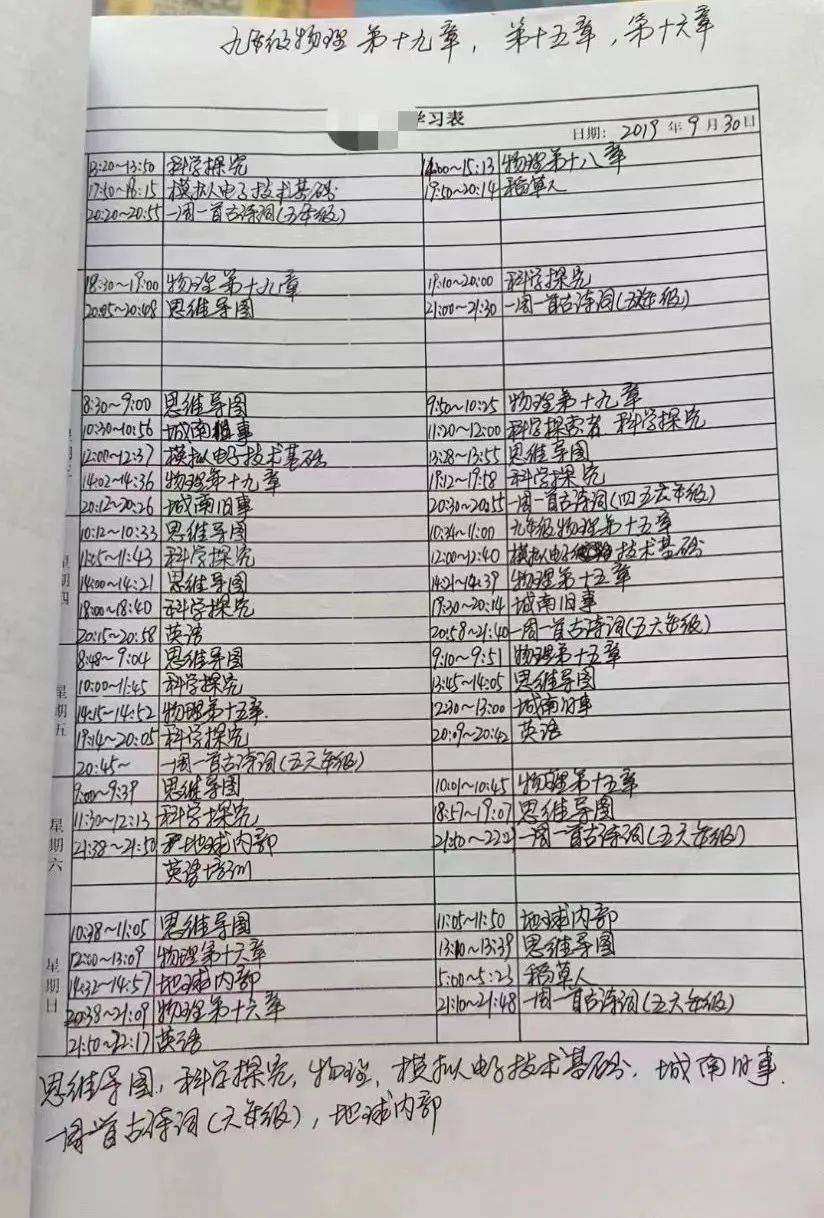 九年级物理 第十九章, 第十五章, 第十六章
学习表
日期: 2019 年 9 月 30 日
13:20~13:50 科学探究 14:00~15:13 物理第十八章
17:50~18:15 模拟电子技术基础 19:50~20:14 稻草人
20:20~20:55 一周一首古诗词(五年级)
18:30~19:00 物理第十九章 19:10~20:00 科学探究
20:05~20:48 思维导图 21:00~21:30 一周一首古诗词(五年级)
8:30~9:00 思维导图 9:50~10:25 物理第十九章
10:30~10:56 城南旧事 11:20~12:00 科学探索者 科学探究
12:00~12:37 模拟电子技术基础 13:28~13:55 思维导图
14:02~14:36 物理第十九章 19:12~19:58 科学探究
20:12~20:26 城南旧事 20:30~20:55 一周一首古诗词(四五六年级)
星期四
10:12~10:33 思维导图 10:34~11:00 九年级物理第十五章
11:25~11:43 科学探究 12:00~12:40 模拟电子技术基础
14:00~14:21 思维导图 14:21~14:39 物理第十五章
18:00~18:40 科学探究 19:30~20:14 城南旧事
20:15~20:58 英语 20:58~21:40 一周一首古诗词(五六年级)
星期五
8:48~9:04 思维导图 9:10~9:51 物理第十五章
10:00~11:45 科学探究 13:45~14:05 思维导图
14:15~14:52 物理第十五章. 12:30~13:00 城南旧事
19:14~20:05 科学探究 20:09~20:42 英语
20:45~ 一周一首古诗词(五六年级)
星期六
9:00~9:39 思维导图 10:01~10:45 物理第十五章
11:30~12:13 科学探究 18:57~19:07 思维导图
21:38~21:50 地球内部 21:50~22:21 一周一首古诗词(五六年级)
英语培训
星期日
10:38~11:05 思维导图 11:05~11:50 地球内部
12:00~13:09 物理第十六章 13:10~13:39 思维导图
14:32~14:57 地球内部 5:00~5:23 稻草人
20:38~21:09 物理第十六章 21:10~21:48 一周一首古诗词(五六年级)
21:50~22:17 英语
思维导图, 科学探究, 物理, 模拟电子技术基础, 城南旧事.
一周一首古诗词(六年级), 地球内部